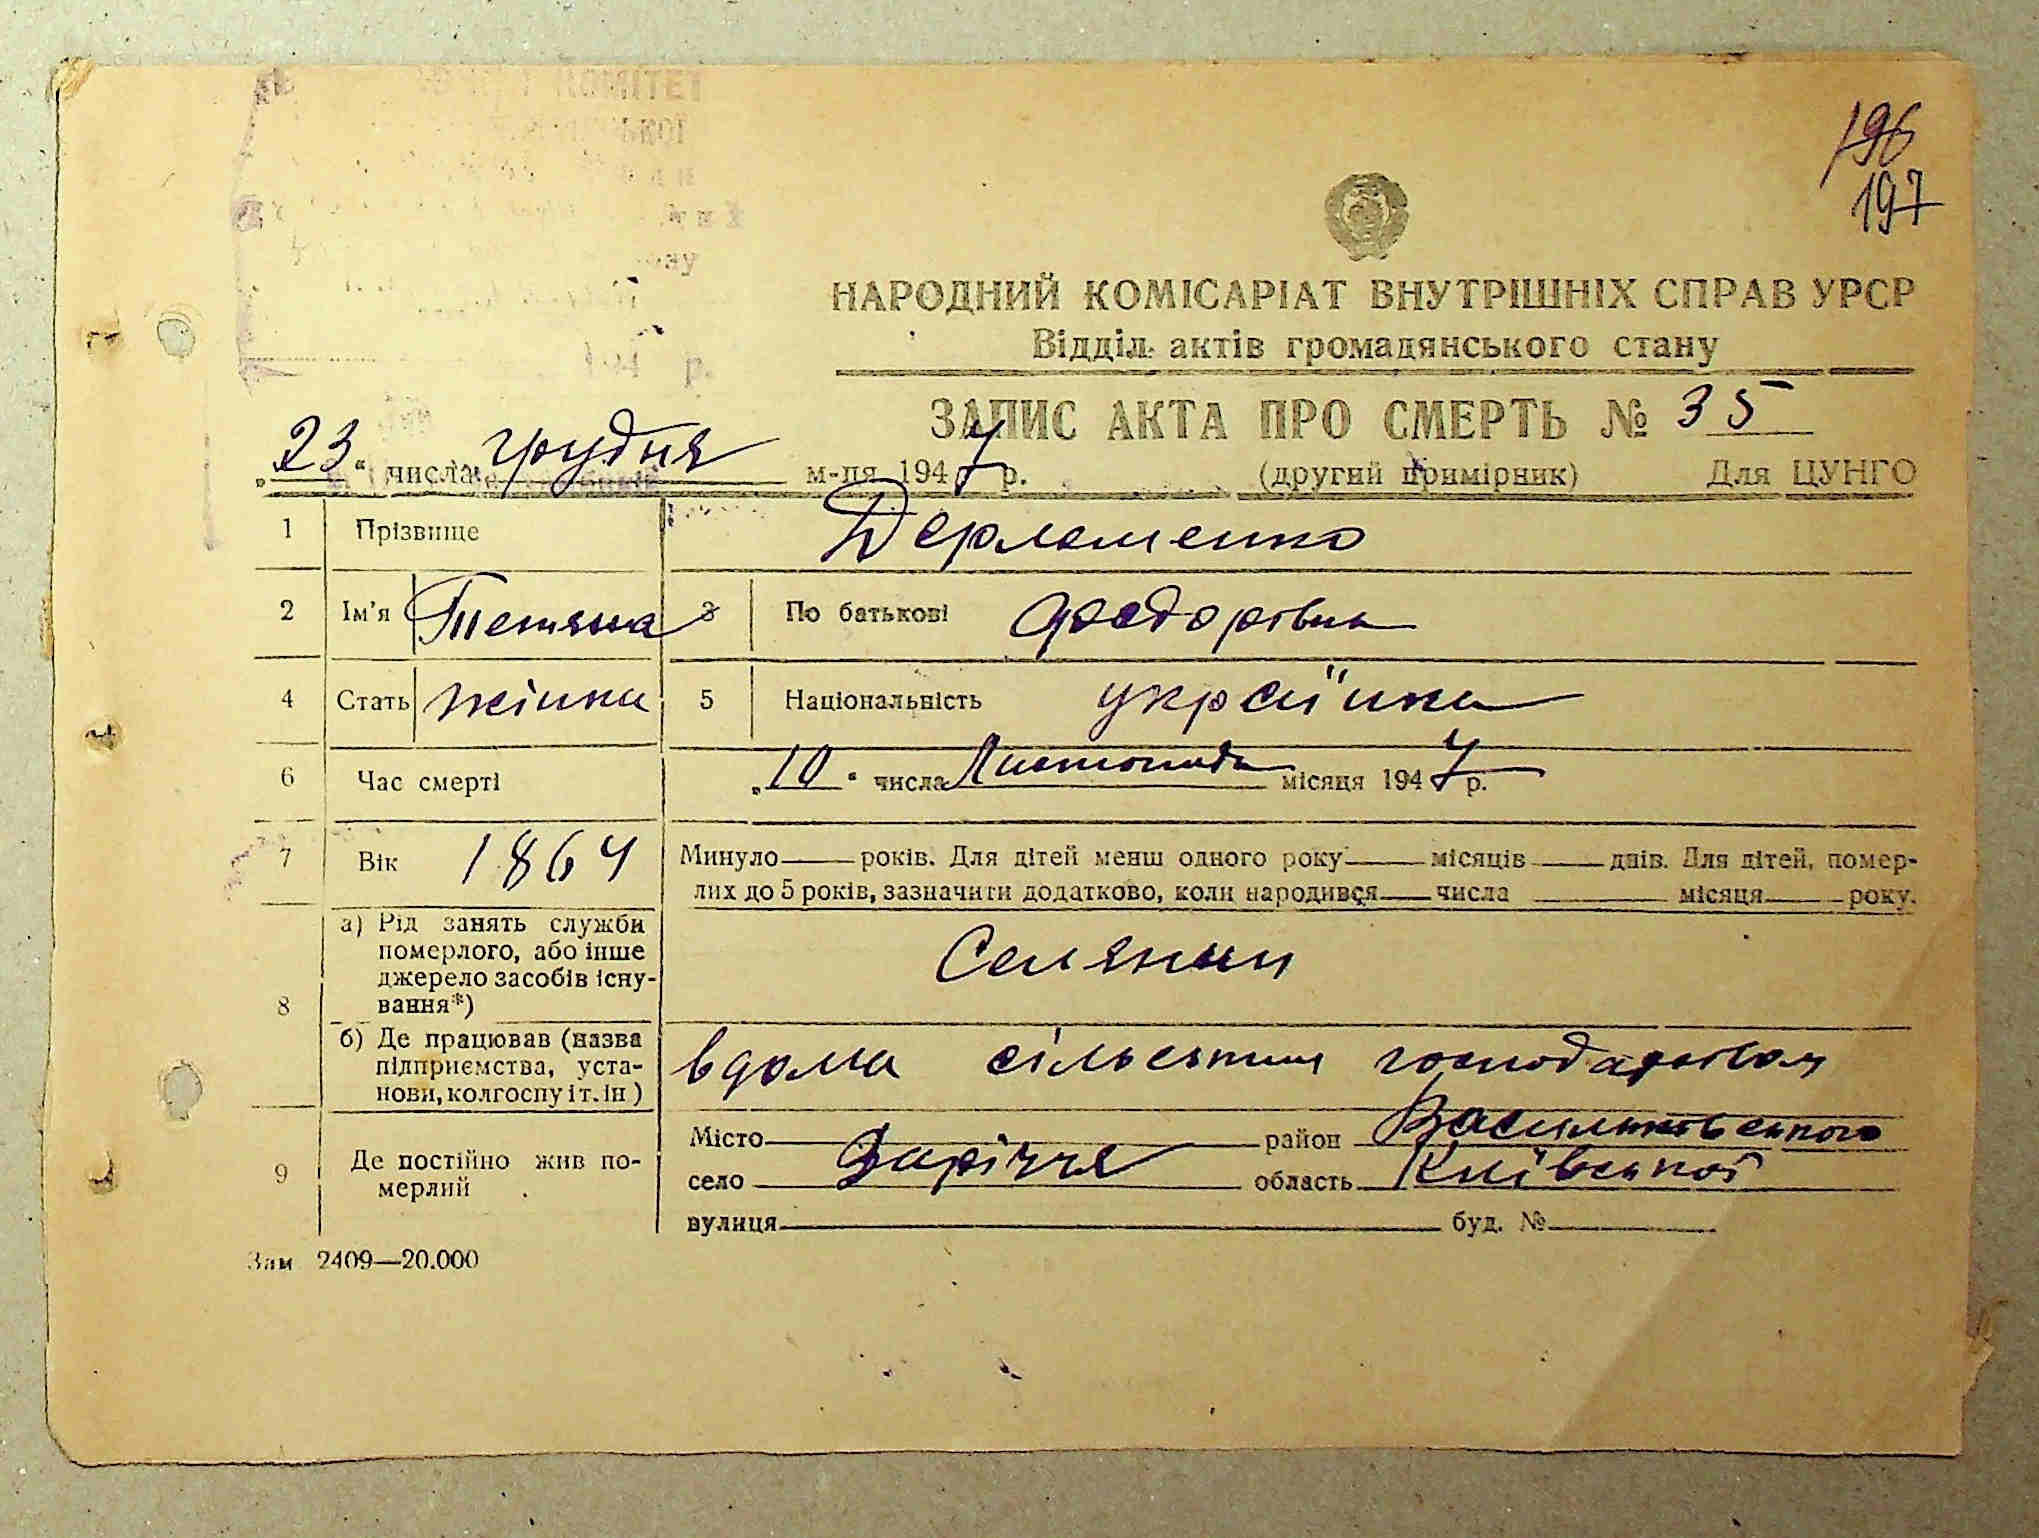 КОМІТЕТ
196
197
НАРОДНИЙ КОМІСАРІАТ ВНУТРІШНІХ СПРАВ УРСР
Відділ актів громадянського стану
194 р.
ЗАПИС АКТА ПРО СМЕРТЬ № 35
„23“ числа грудня м-ця 1947 р. (другий примірник) Для ЦУНГО
1 Прізвище Дерлеменко
2 Ім'я Тетяна 3 По батькові Федорівна
4 Стать жінка 5 Національність українка
6 Час смерті „10“ числа Листопада місяця 1947 р.
7 Вік 1864 Минуло років. Для дітей менш одного року місяців днів. Для дітей, помер-
лих до 5 років, зазначити додатково, коли народився числа місяця року.
8 а) Рід занять служби
померлого, або інше
джерело засобів існу-
вання*)
Селянин
б) Де працював (назва
підприємства, уста-
нови, колгоспу і т. ін)
вдома сільським господарством
9 Де постійно жив по-
мерлий
Місто район Васильковського
село Заріччя область Київської
вулиця буд. №
Зам 2409—20.000